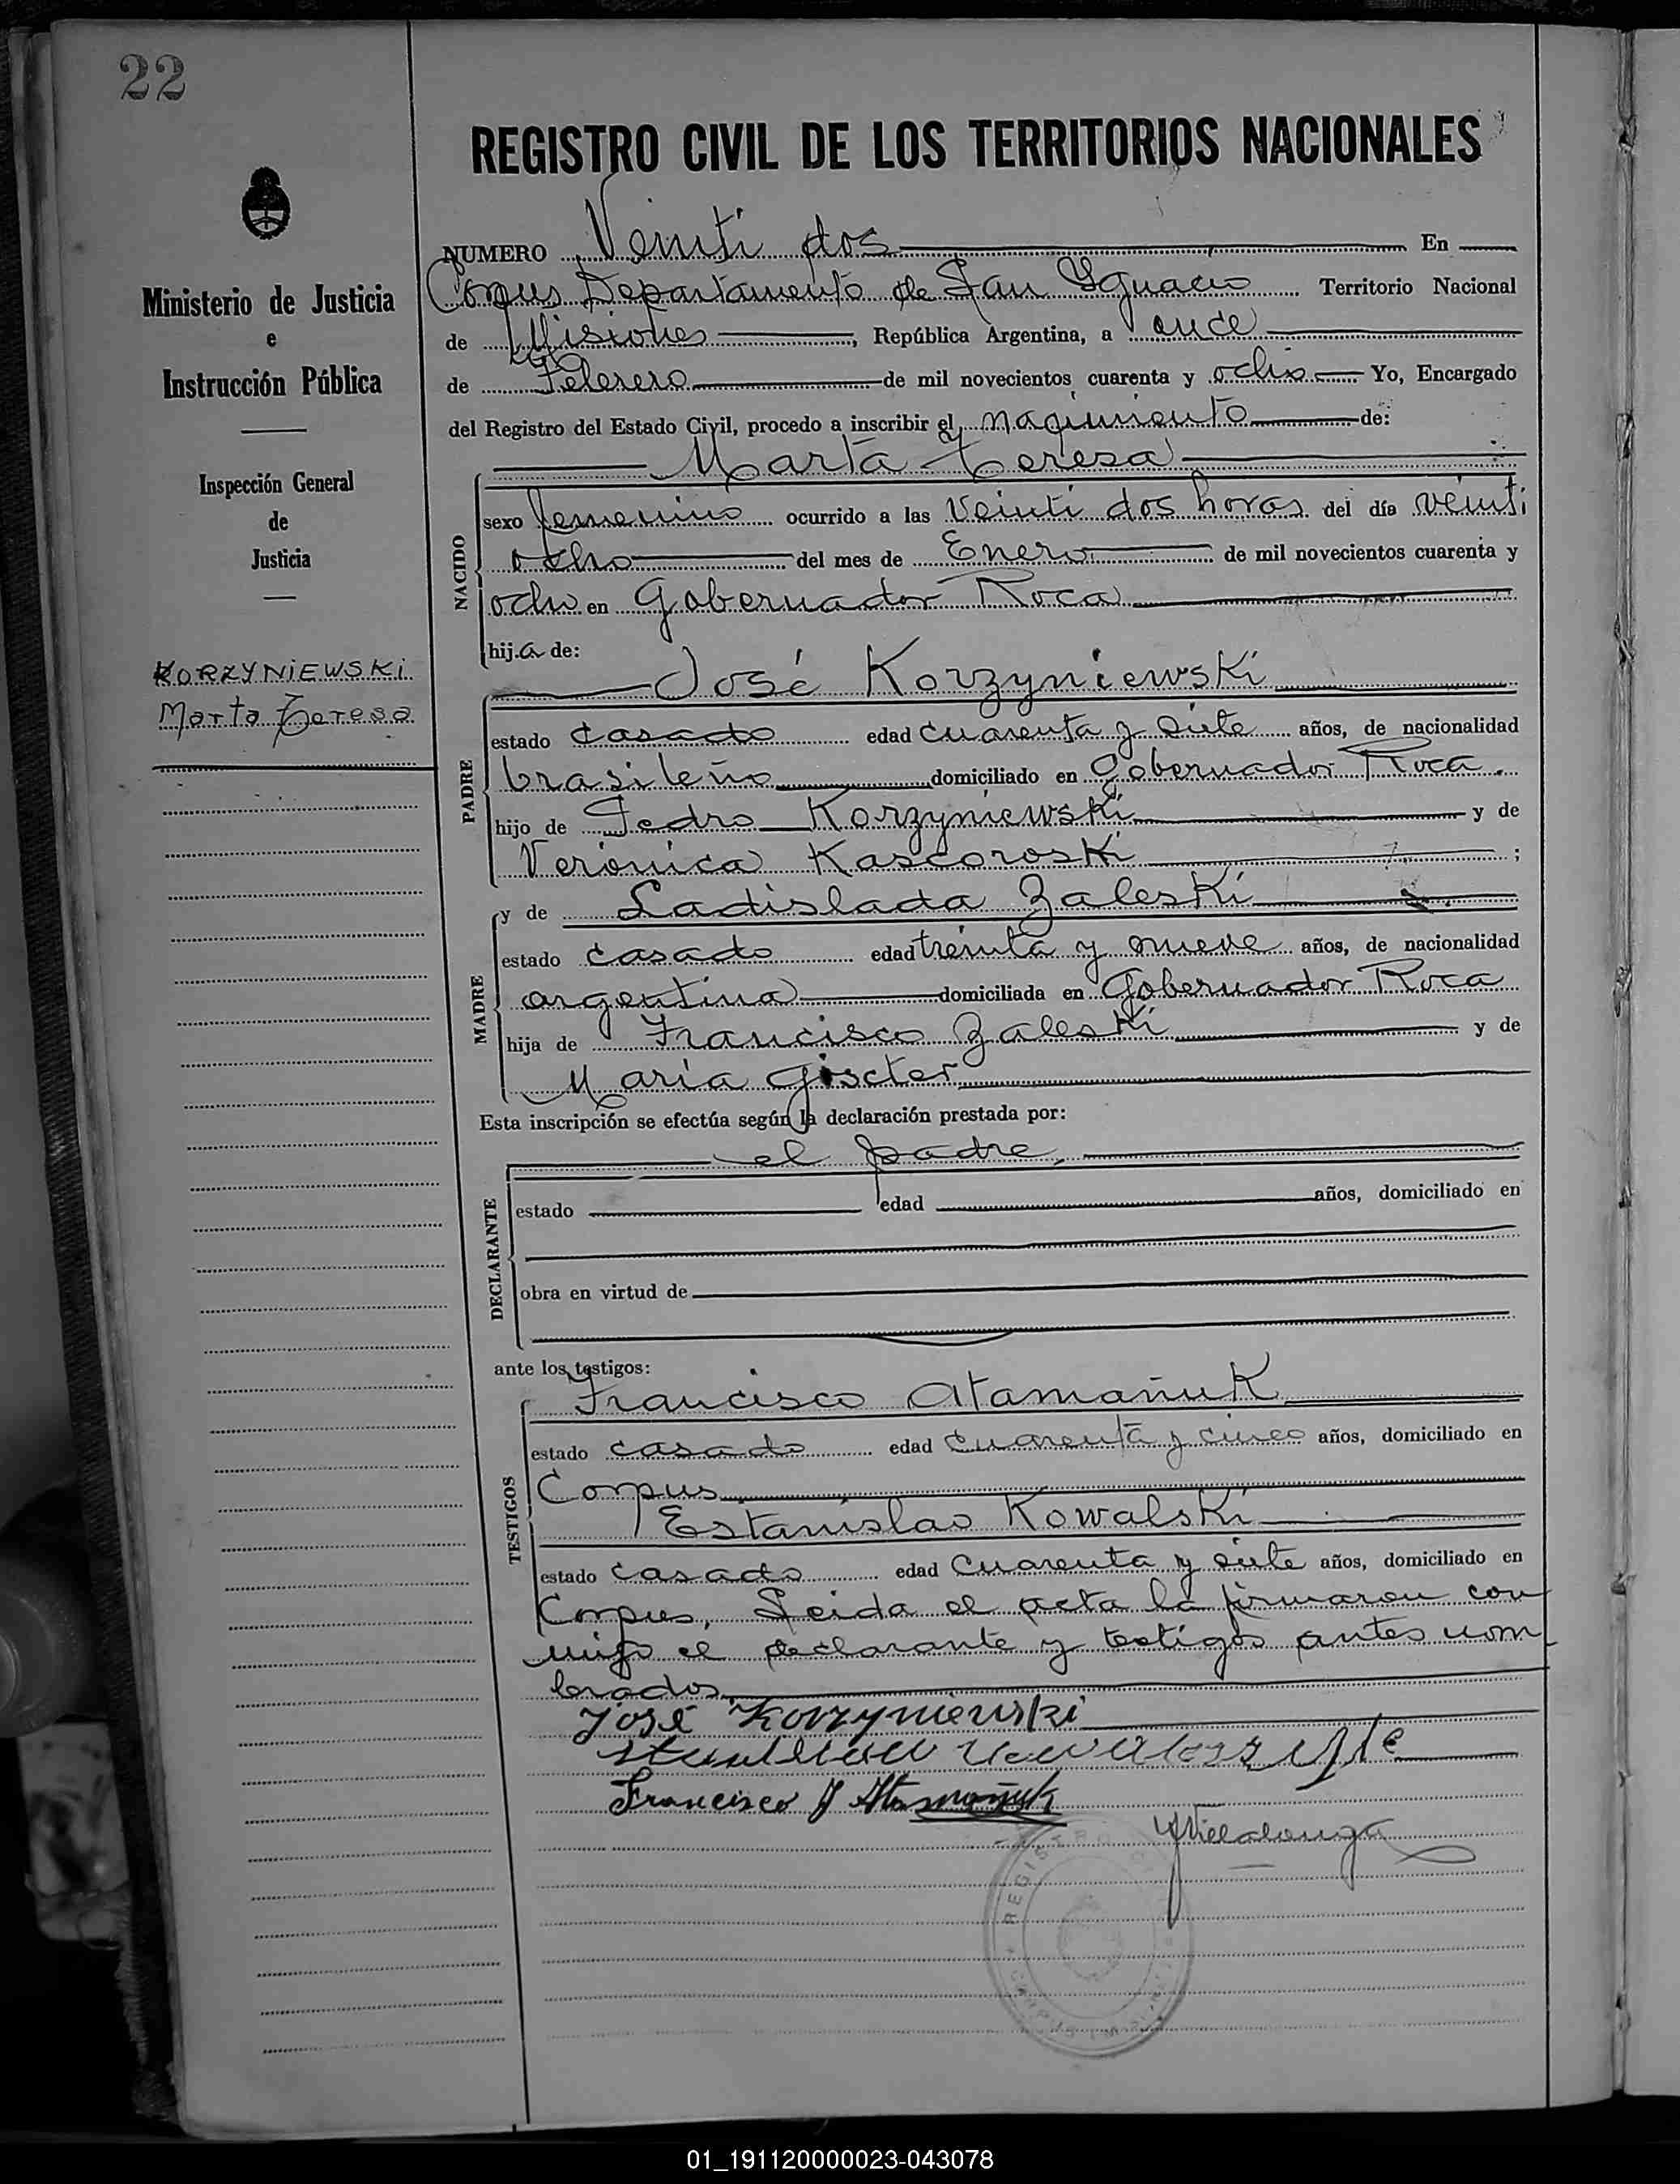 22
REGISTRO CIVIL DE LOS TERRITORIOS NACIONALES
Ministerio de Justicia
e
Instrucción Pública
Inspección General
de
Justicia
KORZYNIEWSKi
Marta Teresa
NUMERO Veinti dos En
Corpus Departamento de San Ygnacio Territorio Nacional
de Misiones, República Argentina, a once
de Febrero de mil novecientos cuarenta y ocho Yo, Encargado
del Registro del Estado Civil, procedo a inscribir el nacimiento de:
Marta Teresa
NACIDO
sexo femenino ocurrido a las Veinti dos horas del día veinti
ocho del mes de Enero de mil novecientos cuarenta y
ocho en Gobernador Roca
hija de:
José Korzyniewski
PADRE
estado casado edad cuarenta y siete años, de nacionalidad
brasileño domiciliado en Gobernador Roca.
hijo de Pedro Korzyniewski y de
Verónica Kascoroski ;
MADRE
y de Ladislada Zaleski
estado casado edad treinta y nueve años, de nacionalidad
argentina domiciliada en Gobernador Roca
hija de Francisco Zaleski y de
María Giscter
Esta inscripción se efectúa según la declaración prestada por:
el padre,
DECLARANTE
estado edad años, domiciliado en
obra en virtud de
ante los testigos:
TESTIGOS
Francisco Atamañuk
estado casado edad cuarenta y cinco años, domiciliado en
Corpus
Estanislao Kowalski
estado casado edad cuarenta y siete años, domiciliado en
Corpus, Leida el acta la firmaron con
migo el declarante y testigos antes nom
brados.
José Korzyniewski
Francisco J Atamañuk
Villalonga
REGISTRO
01_191120000023-043078